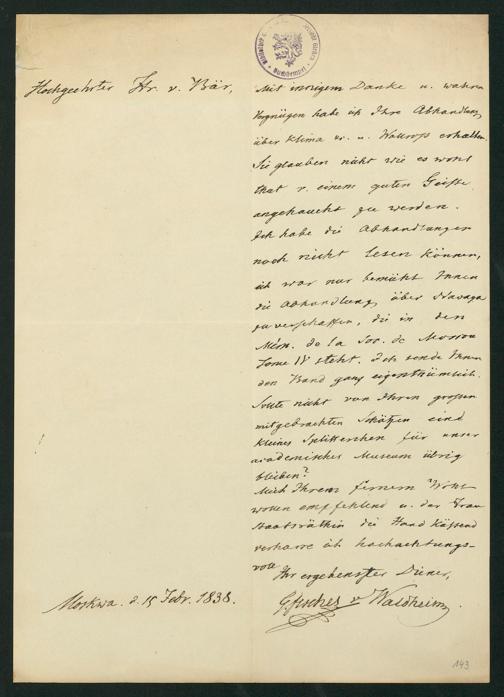 Hochgeehrter Hr. v. Bär,
Mit innigem Danke u. wahrem
Vergnügen habe ich Ihre Abhandlung
über Klima u. Wallross erhalten.
Sie glauben nicht wie es wohl
thut v. einem guten Geiste
angehaucht zu werden.
Ich habe die Abhandlungen
noch nicht lesen können,
ich war nur bemüht Ihnen
die Abhandlung über Navaga
zu verschaffen, die in den
Mém. de la Soc. de Moscou
Tome IV steht. Ich sende Ihnen
den Band ganz eigenthümlich.
Sollte nicht von Ihren grossen
mitgebrachten Schätzen ein
kleines Splitterchen für unser
academisches Museum übrig
bleiben?
Mich Ihrem fernern Wohl
wollen empfehlend u. der Frau
Staatsräthin die Hand küssend
verharre ich hochachtungs-
voll
Ihr ergebenster Diener,
G. Fischer v. Waldheim.
Moskwa. d. 15 Febr. 1838.
143